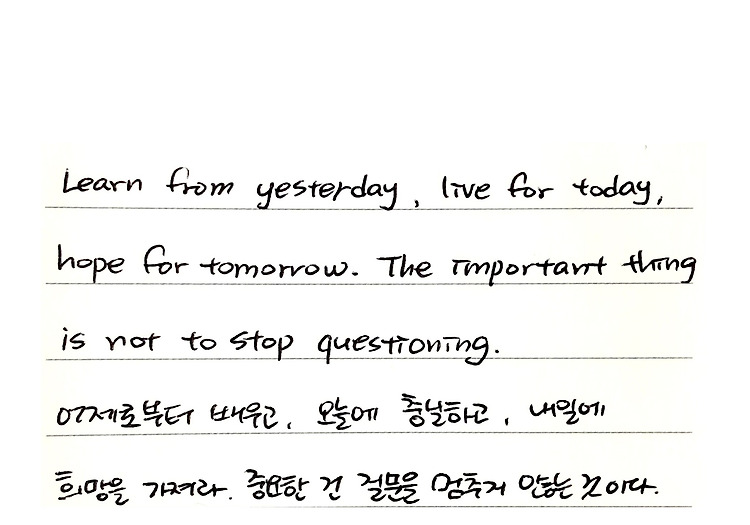 Learn from yesterday, live for today,
hope for tomorrow. The important thing
is not to stop questioning.
어제로부터 배우고, 오늘에 충실하고, 내일에
희망을 가져라. 중요한 건 질문을 멈추지 않는 것이다.